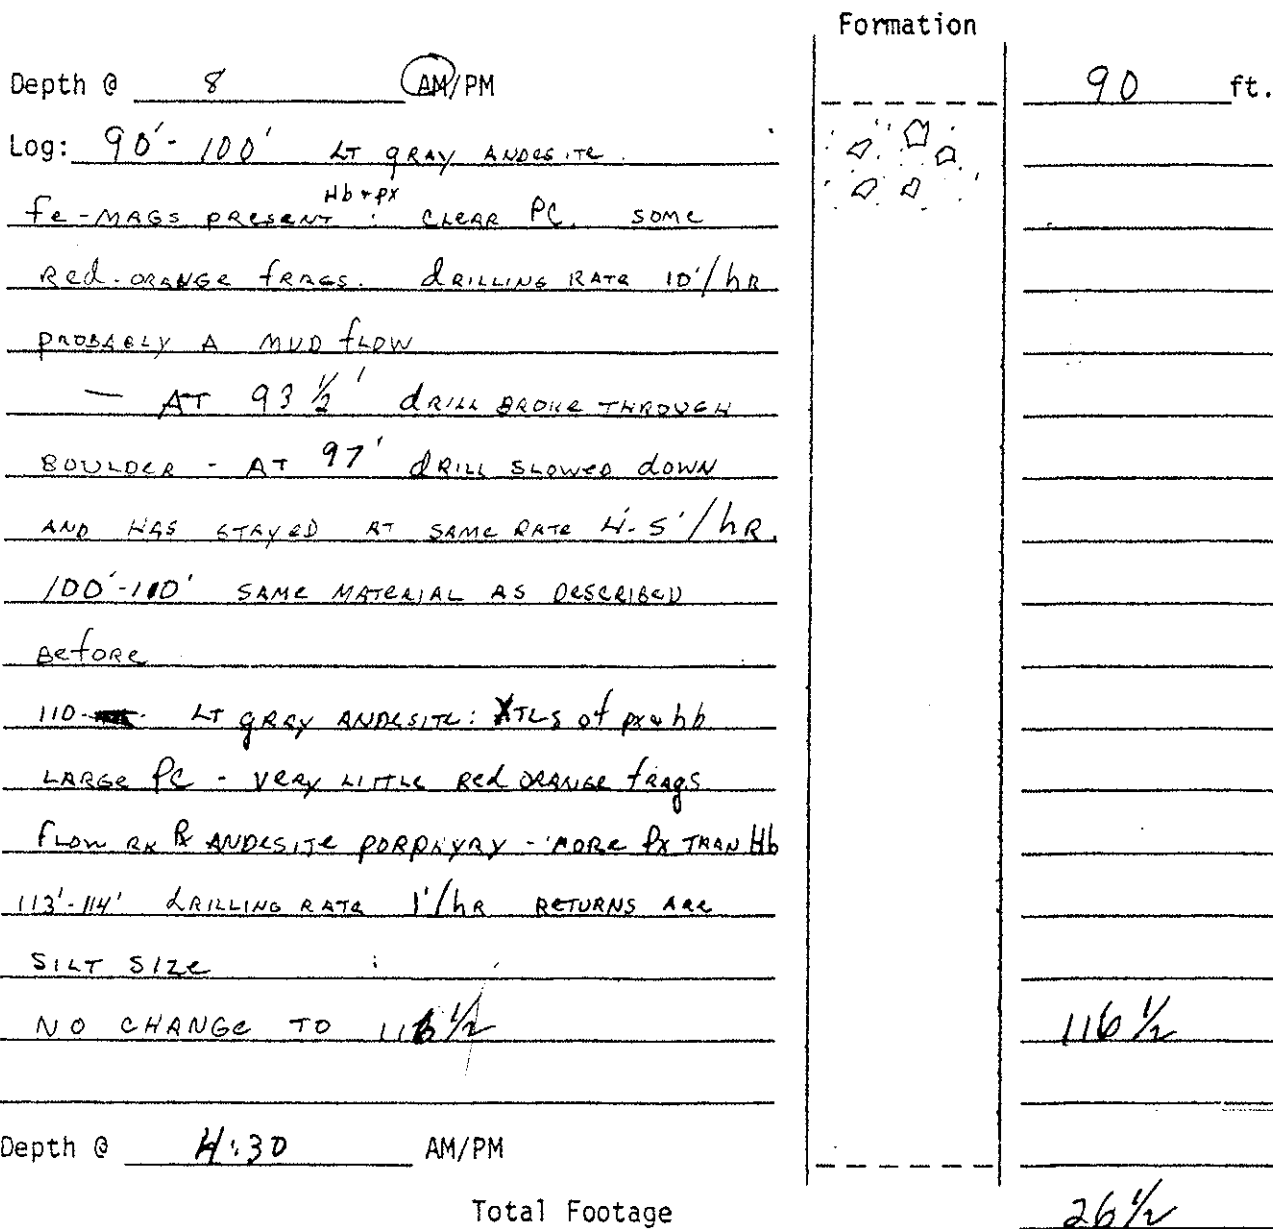 Formation
Depth @ 8 AM/PM 90 ft.
Log: 90'- 100' LT gRAY ANDESITE.
Hb + px
fe-MAGS PRESENT : CLEAR PC. SOME
Red-ORANGE fRAGS. dRILLING RATE 10'/hR
PROBABLY A MUD fLOW
— AT 93 1/2' dRILL BROKE THROUGH
BOULDER - AT 97' dRILL SLOWED dOWN
AND HAS STAYED AT SAME RATE 4'-5'/hR.
100'-110' SAME MATERIAL AS DESCRIBED
Before
110- LT gRAY ANDESITE: XTLS of px & hb
LARGE PC - VERY LITTLE Red ORANGE fRAgS
fLOW RX ANDESITE PORPHYRY - MORE Px THAN Hb
113'-114' dRILLING RATE 1'/hR RETURNS ARE
SILT SIZE
NO CHANGE TO 116 1/2 116 1/2
Depth @ 4:30 AM/PM
Total Footage 26 1/2